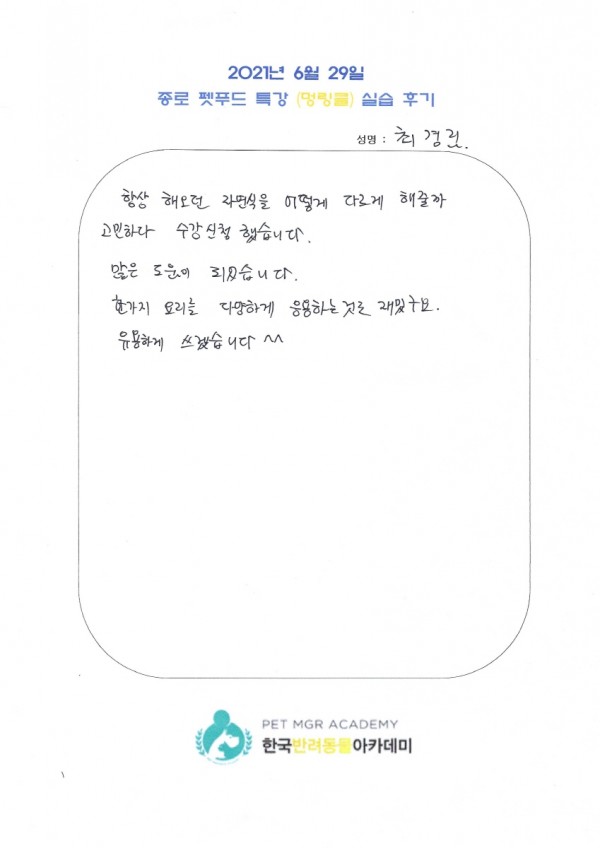 2021년 6월 29일
종로 펫푸드 특강 (멍링클) 실습 후기
성명 : 최경린.
항상 해오던 자연식을 어떻게 다르게 해줄까
고민하다 수강신청 했습니다.
많은 도움이 되었습니다.
한가지 요리를 다양하게 응용하는것도 재밌구요.
유용하게 쓰겠습니다 ^^
PET MGR ACADEMY
한국반려동물아카데미